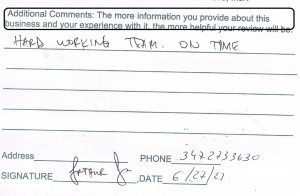 Additional Comments: The more information you provide about this
business and your experience with it, the more helpful your review will be.
HARD WORKING TEAM. ON TIME
Address PHONE 3472733630
SIGNATURE DATE 6/27/22